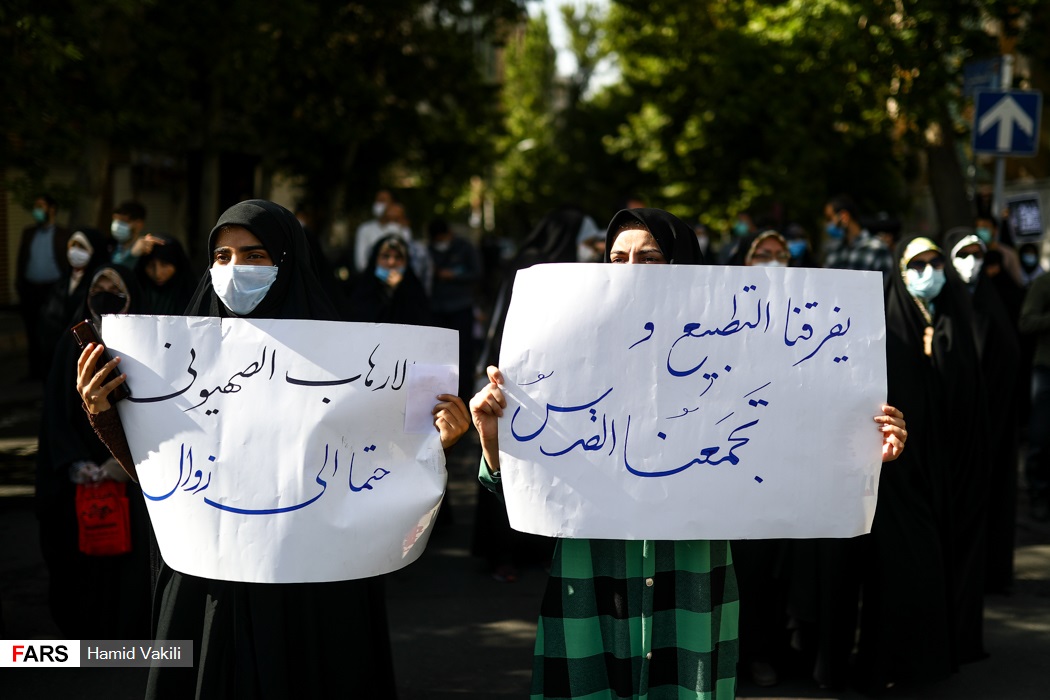 لارهاب الصهيوني
حتما الى زوال
يفرقنا التطبيع و
تجمَعنُا القدسُ
FARS Hamid Vakili